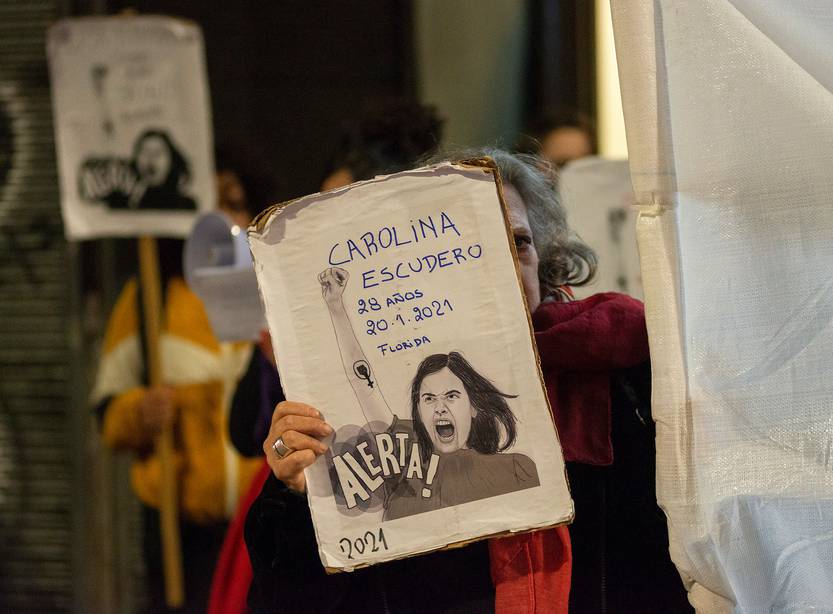 CAROLINA
ESCUDERO
28 AÑOS
20.1.2021
FLORIDA
ALERTA!
2021
ALERTA